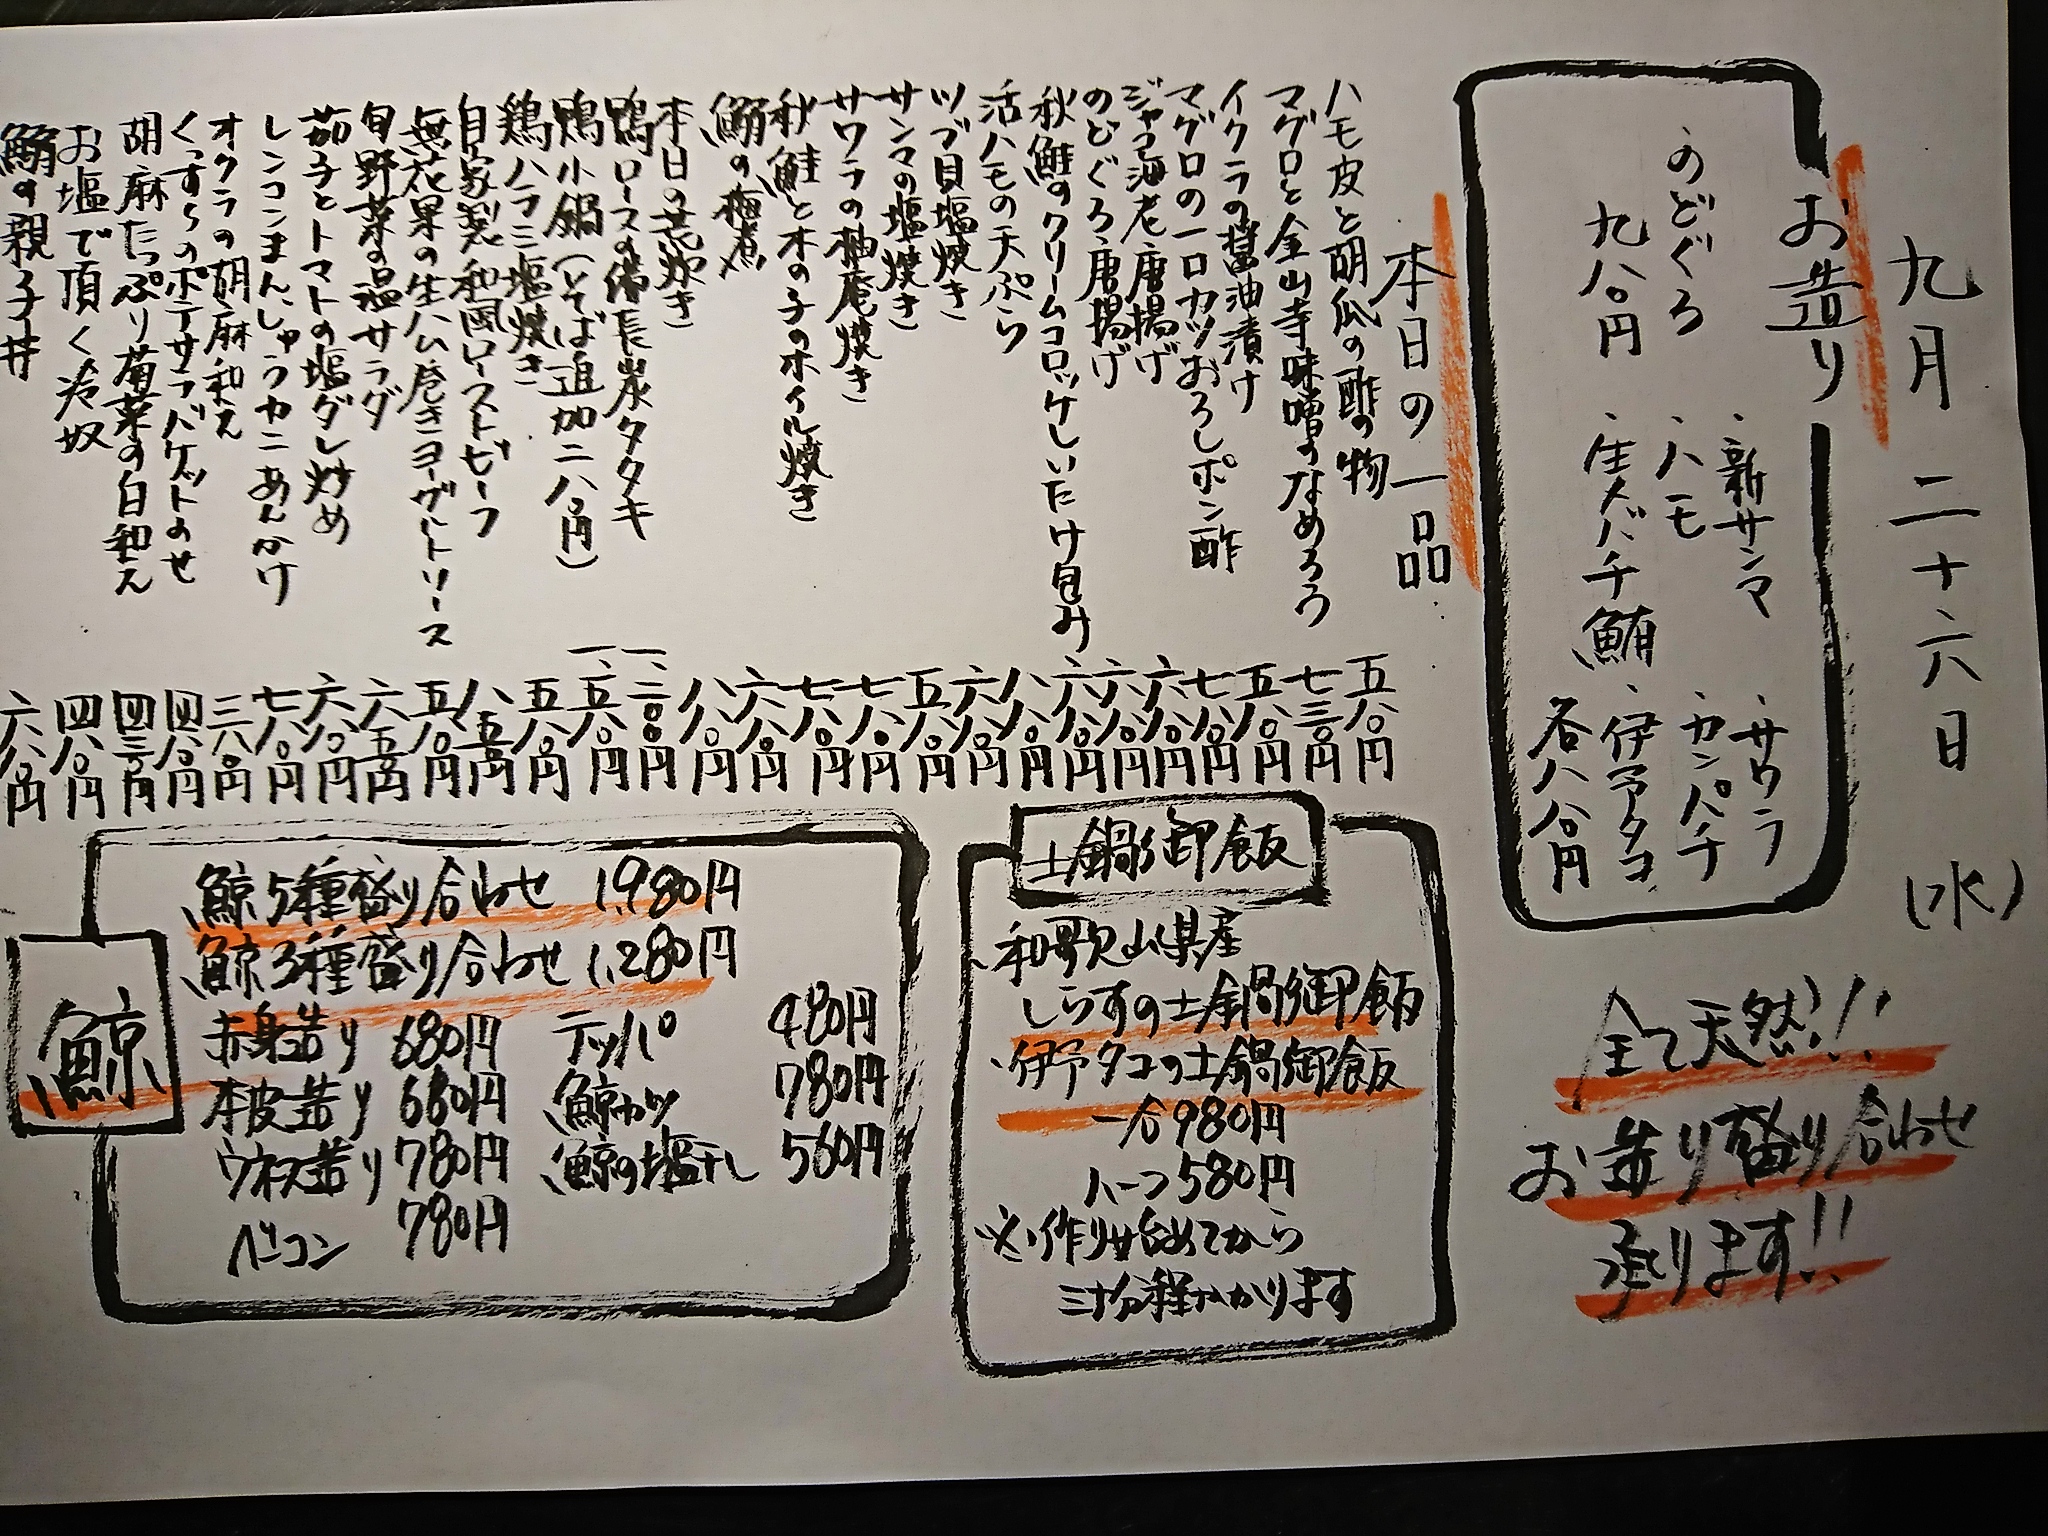 九月二十六日(水)
お造り
・のどぐろ
九八〇円
・新サンマ
・ハモ
・生メバチ鮪
・サワラ
・カンパチ
・伊予タコ
各八八〇円
全て天然!!
お造り盛り合わせ
承ります!!
本日の一品
ハモ皮と胡瓜の酢の物 五八〇円
マグロと金山寺味噌のなめろう 七三〇円
イクラの醤油漬け 五八〇円
マグロの一口カツおろしポン酢 七八〇円
ジャコ海老唐揚げ 六八〇円
のどぐろ唐揚げ 六八〇円
秋鮭のクリームコロッケしいたけ包み 六八〇円
活ハモの天ぷら 八八〇円
ツブ貝塩焼き 六八〇円
サンマの塩焼き 五八〇円
サワラの柚庵焼き 七八〇円
秋鮭と木の子のホイル焼き 七八〇円
鰯の梅煮 六八〇円
本日の荒炊き 八八〇円
鴨ロースの備長炭タタキ 一、二〇〇円
鴨小鍋(いそば追加二八〇円) 一、五八〇円
鶏ハラミ塩焼き 五八〇円
自家製和風ローストビーフ 八五〇円
無花果の生ハム巻きヨーグルトソース 五八〇円
旬野菜の温サラダ 六五〇円
茄子とトマトの塩ダレ炒め 六八〇円
レンコンまんじゅうカニあんかけ 七八〇円
オクラの胡麻和え 三八〇円
ポテサラバケットのせ 四八〇円
胡麻たっぷり菊菜の白和え 四三〇円
お塩で頂く冷奴 四八〇円
鰯の親子丼 六八〇円
土鍋御飯
和歌山県産
しらすの土鍋御飯
・伊予タコの土鍋御飯
一合980円
ハーフ580円
※作り始めてから
三十分程かかります
鯨
鯨5種盛り合わせ 1,980円
鯨3種盛り合わせ 1,280円
赤身造り 680円
本皮造り 680円
ウネス造り 780円
ベーコン 780円
テッパ 480円
鯨カツ 780円
鯨の塩干し 560円